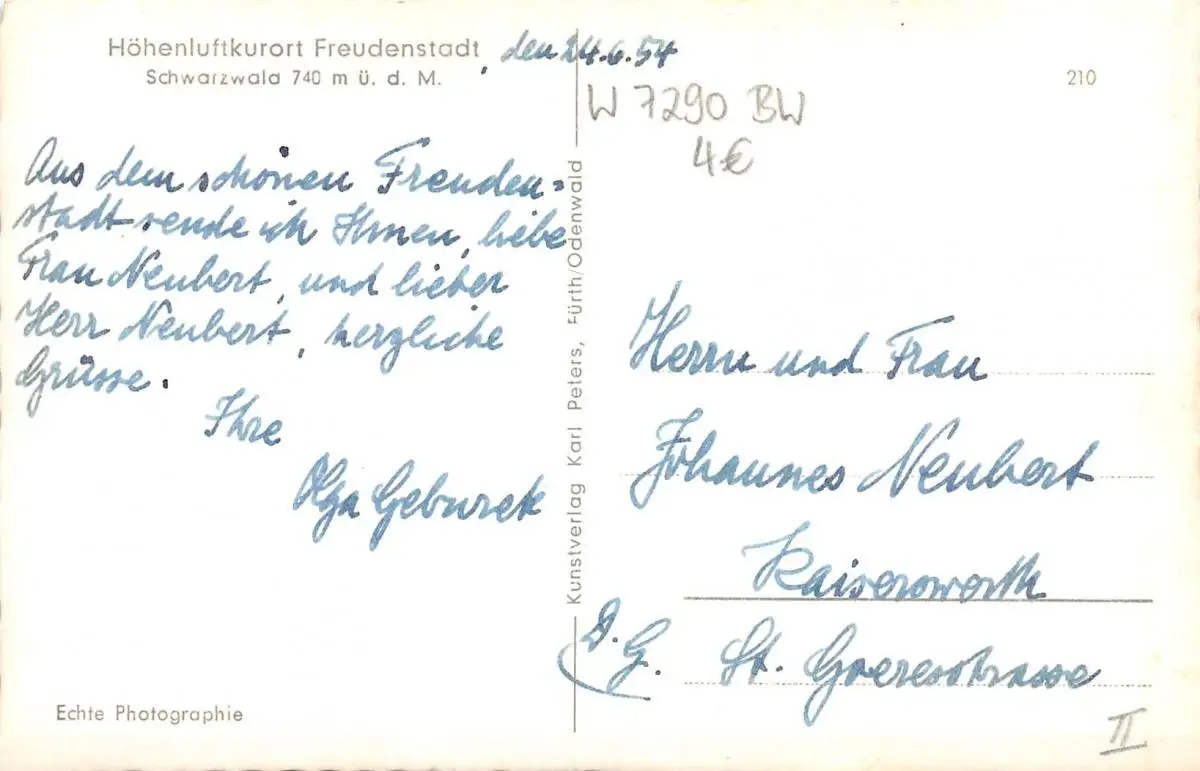 Höhenluftkurort Freudenstadt, den 24.6.54
Schwarzwald 740 m ü. d. M.
210
W 7290 BW
4€
Aus dem schönen Freuden=
stadt sende ich Ihnen, liebe
Frau Neubert, und lieber
Herr Neubert, herzliche
Grüsse.
Ihre
Olga Geburek
Kunstverlag Karl Peters, Fürth/Odenwald
Herrn und Frau
Johannes Neubert
Kaiserswerth
D. G. St. Goeresstrasse
Echte Photographie
II